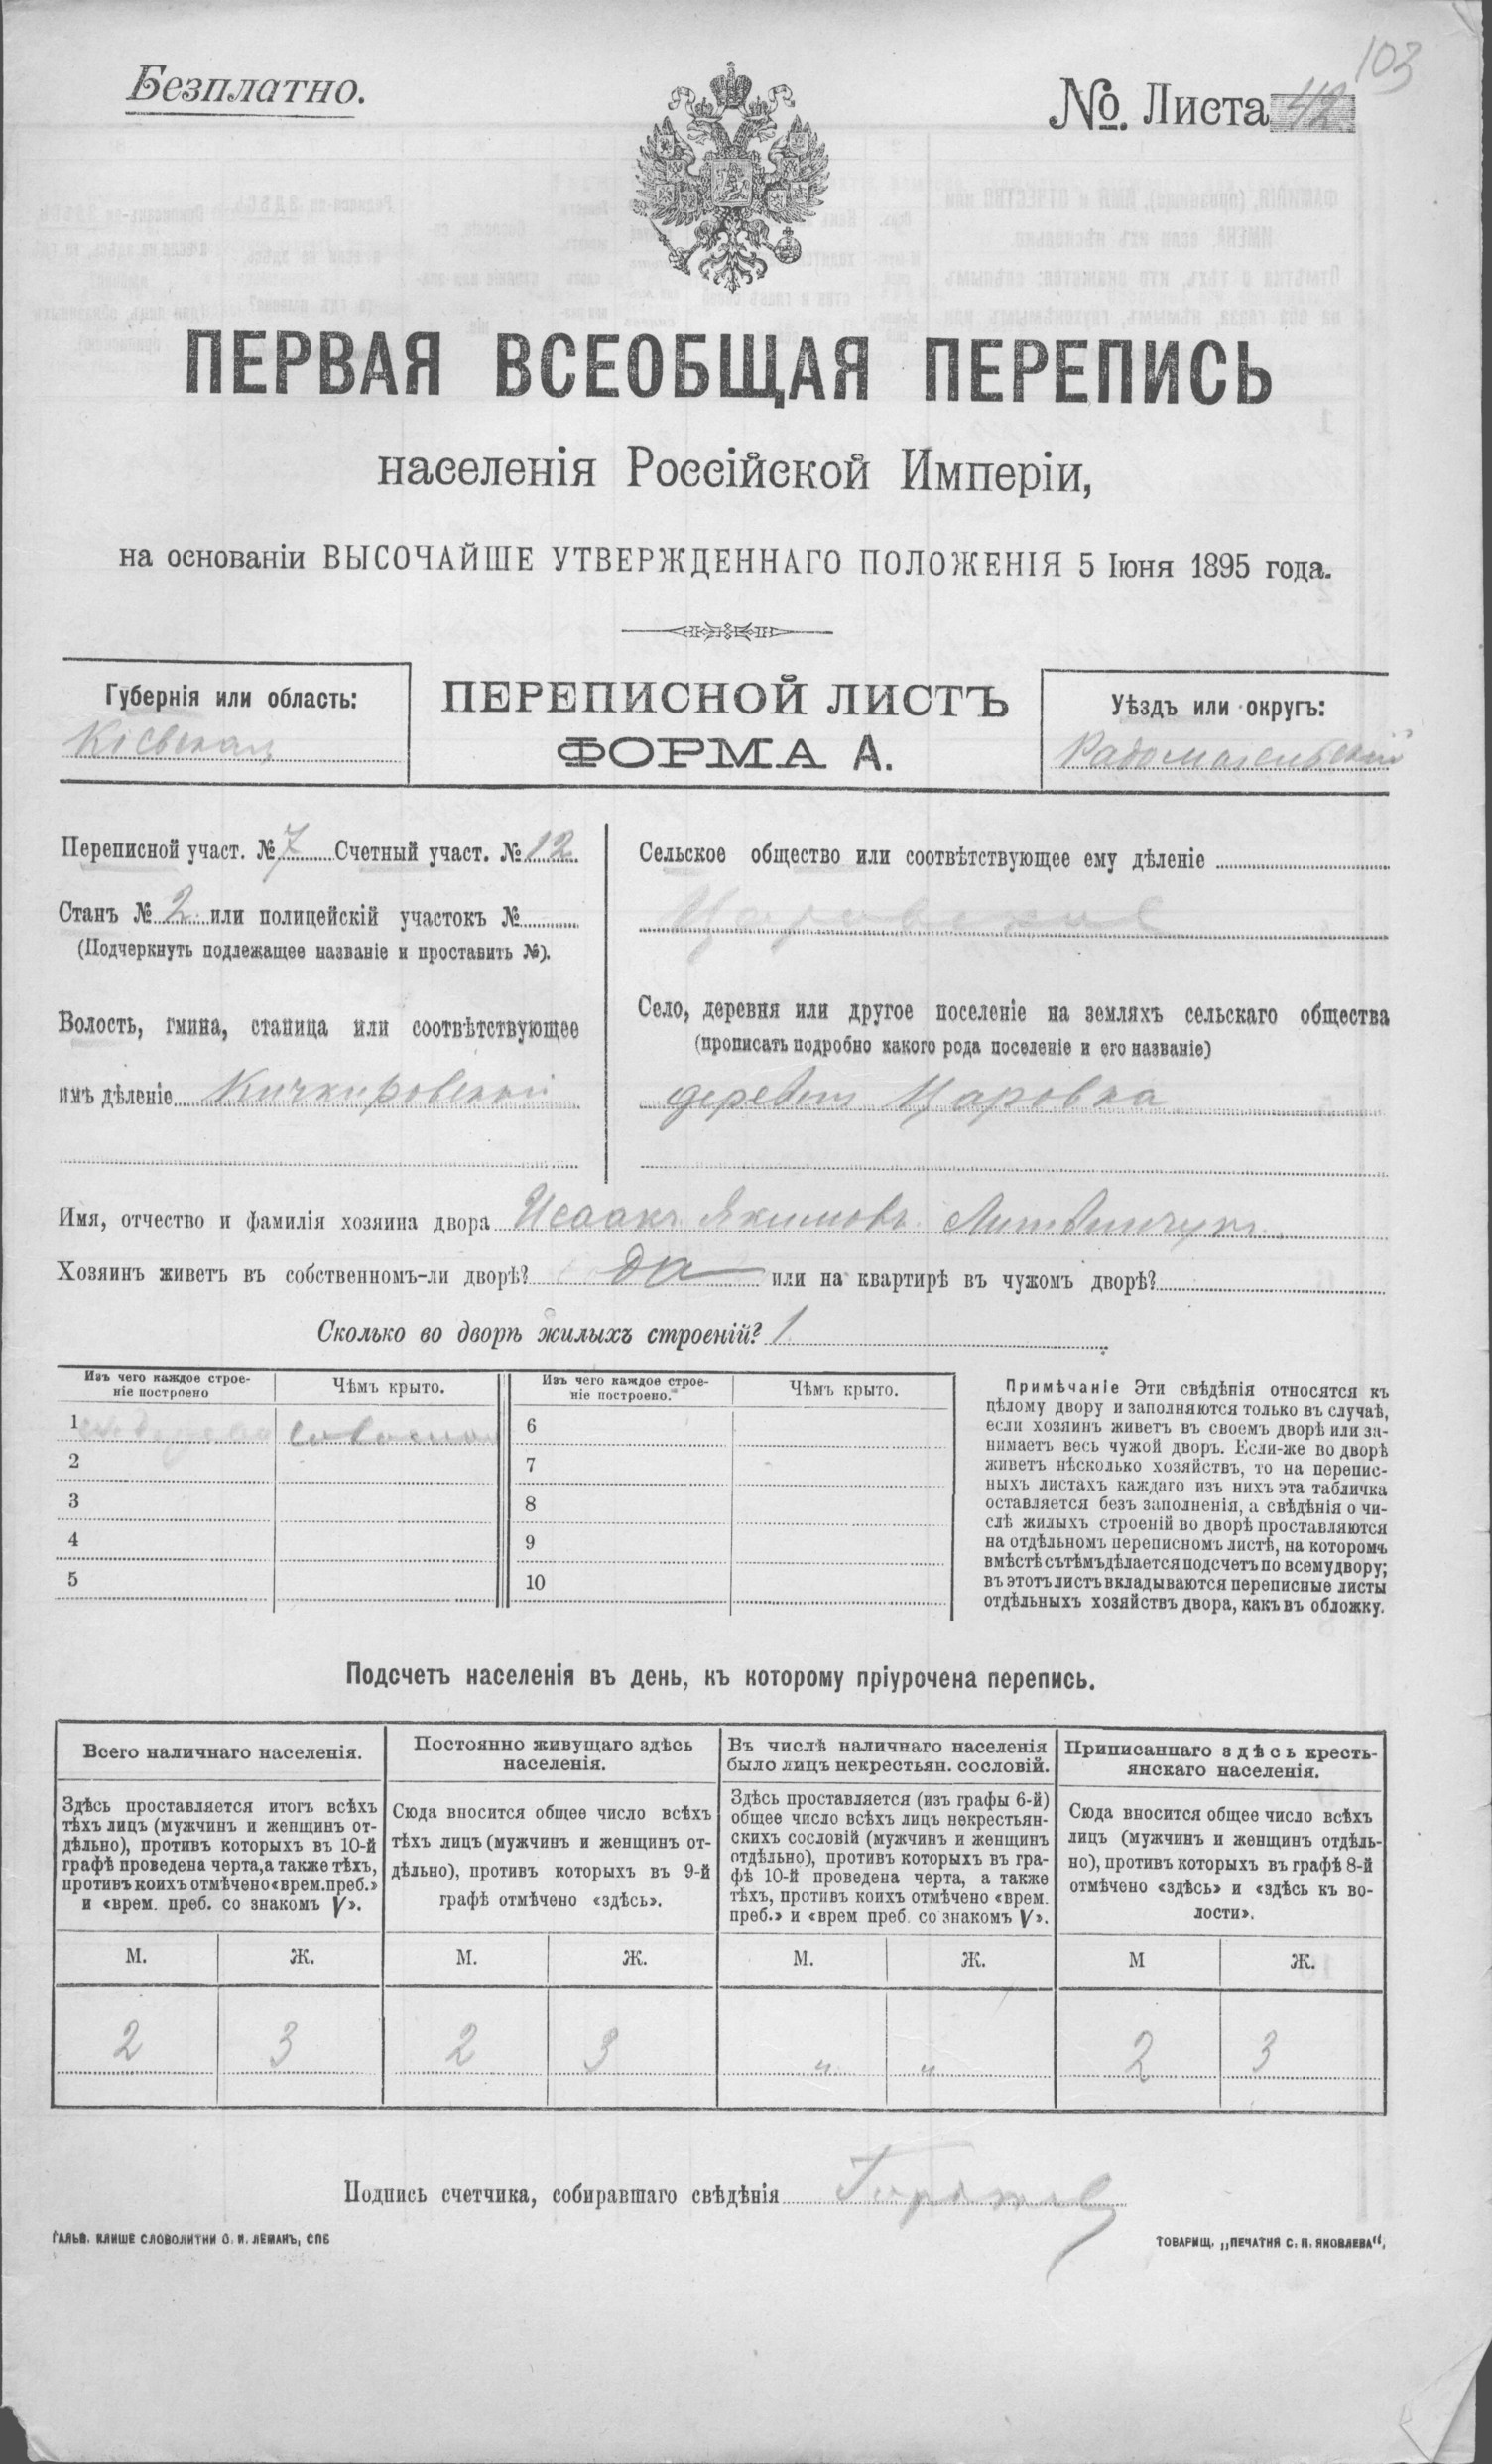 103
Безплатно.
№. Листа 42
ПЕРВАЯ ВСЕОБЩАЯ ПЕРЕПИСЬ
населенія Россійской Имперіи,
на основаніи ВЫСОЧАЙШЕ УТВЕРЖДЕННАГО ПОЛОЖЕНІЯ 5 Іюня 1895 года.
Губернія или область:
Кіевская
ПЕРЕПИСНОЙ ЛИСТЪ
ФОРМА А.
Уѣздъ или округъ:
Радомысльскій
Переписной участ. № 7 Счетный участ. № 12
Станъ № 2 или полицейскій участокъ №
(Подчеркнуть подлежащее названіе и проставить №).
Волость, гмина, станица или соотвѣтствующее
имъ дѣленіе Кичкировской
Сельское общество или соотвѣтствующее ему дѣленіе
Царовское
Село, деревня или другое поселеніе на земляхъ сельскаго общества
(прописать подробно какого рода поселеніе и его названіе)
деревня Царовка
Имя, отчество и фамилія хозяина двора Исаакъ Якимовъ Литвинчукъ
Хозяинъ живетъ въ собственномъ-ли дворѣ? да или на квартирѣ въ чужомъ дворѣ?
Сколько во дворѣ жилыхъ строеній? 1
Изъ чего каждое строе-
ніе построено
Чѣмъ крыто.
Изъ чего каждое строе-
ніе построено.
Чѣмъ крыто.
1
6
2
7
3
8
4
9
5
10
Примѣчаніе Эти свѣдѣнія относятся къ
цѣлому двору и заполняются только въ случаѣ,
если хозяинъ живетъ въ своемъ дворѣ или за-
нимаетъ весь чужой дворъ. Если-же во дворѣ
живетъ нѣсколько хозяйствъ, то на перепис-
ныхъ листахъ каждаго изъ нихъ эта табличка
оставляется безъ заполненія, а свѣдѣнія о чи-
слѣ жилыхъ строеній во дворѣ проставляются
на отдѣльномъ переписномъ листѣ, на которомъ
вмѣстѣ съ тѣмъ дѣлается подсчетъ по всему двору;
въ этотъ листъ вкладываются переписные листы
отдѣльныхъ хозяйствъ двора, какъ въ обложку.
Подсчетъ населенія въ день, къ которому пріурочена перепись.
Всего наличнаго населенія.
Здѣсь проставляется итогъ всѣхъ
тѣхъ лицъ (мужчинъ и женщинъ от-
дѣльно), противъ которыхъ въ 10-й
графѣ проведена черта, а также тѣхъ,
противъ коихъ отмѣчено «врем. преб.»
и «врем. преб. со знакомъ V».
М. Ж.
2 3
Постоянно живущаго здѣсь
населенія.
Сюда вносится общее число всѣхъ
тѣхъ лицъ (мужчинъ и женщинъ от-
дѣльно), противъ которыхъ въ 9-й
графѣ отмѣчено «здѣсь».
М. Ж.
2 3
Въ числѣ наличнаго населенія
было лицъ некрестьян. сословій.
Здѣсь проставляется (изъ графы 6-й)
общее число всѣхъ лицъ некрестьян-
скихъ сословій (мужчинъ и женщинъ
отдѣльно), противъ которыхъ въ гра-
фѣ 10-й проведена черта, а также
тѣхъ, противъ коихъ отмѣчено «врем.
преб.» и «врем преб. со знакомъ V».
М. Ж.
" "
Приписаннаго здѣсь кресть-
янскаго населенія.
Сюда вносится общее число всѣхъ
лицъ (мужчинъ и женщинъ отдѣль-
но), противъ которыхъ въ графѣ 8-й
отмѣчено «здѣсь» и «здѣсь къ во-
лости».
М Ж.
2 3
Подпись счетчика, собиравшаго свѣдѣнія
ГАЛЬВ. КЛИШЕ СЛОВОЛИТНИ О. И. ЛЕМАНЪ, СПБ
ТОВАРИЩ. „ПЕЧАТНЯ С. П. ЯКОВЛЕВА",